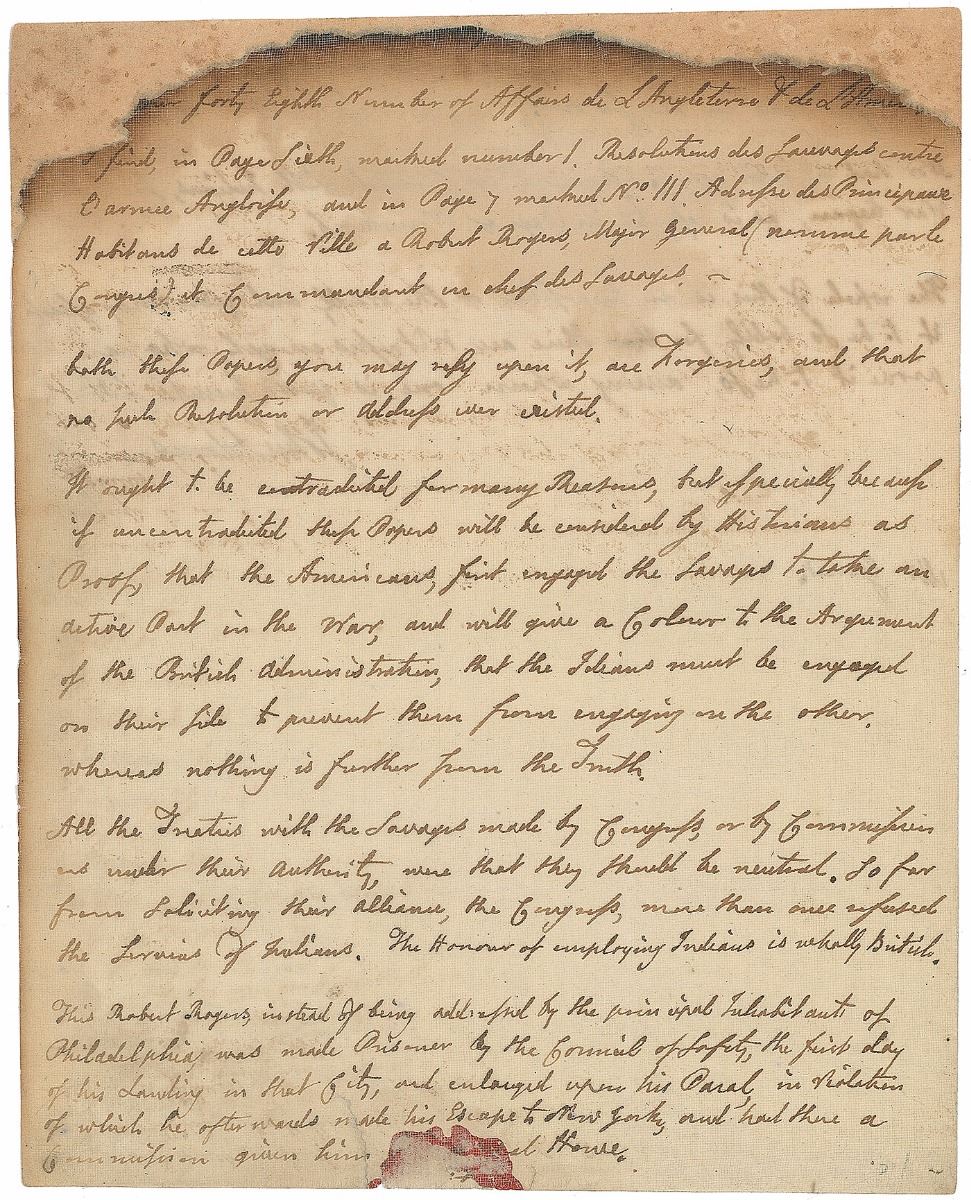 forty Eighth Number of Affairs de L Angleterre & de L
I find, in Page Sixth, marked number 1. Resolutions des Sauvages contre
L'armee Angloise, and in Page 7 marked No. III. Adresse des Principaux
Habitans de cette Ville a Robert Rogers, Major General (nomme par le
Congres) et Commandant in chef des Sauvages. ~
both these Papers, you may rely upon it, are Forgeries, and that
no such Resolution or Address ever existed.
It ought to be contradicted for many Reasons, but especially because
if uncontradicted these Papers will be considered by Historians as
Proof, that the Americans, first engaged the Savages to take an
active Part in the War, and will give a Colour to the Argument
of the British Administration, that the Idians must be engaged
on their side to prevent them from engaging on the other.
whereas nothing is further from the Truth.
All the Treaties with the Savages made by Congress, or by Commission
ers under their Authority, were that they should be neutral. So far
from Soliciting their alliance, the Congress, more than once refused
the Services of Indians. The Honour of employing Indians is wholly British.
This Robert Rogers, instead of being addressed by the principal Inhabitants of
Philadelphia, was made Prisoner by the Council of Safety, the first day
of his Landing in that City, and enlarged upon his Parol, in Violation
of which he afterwards made his Escape to New York, and had there a
Commission given him Howe.